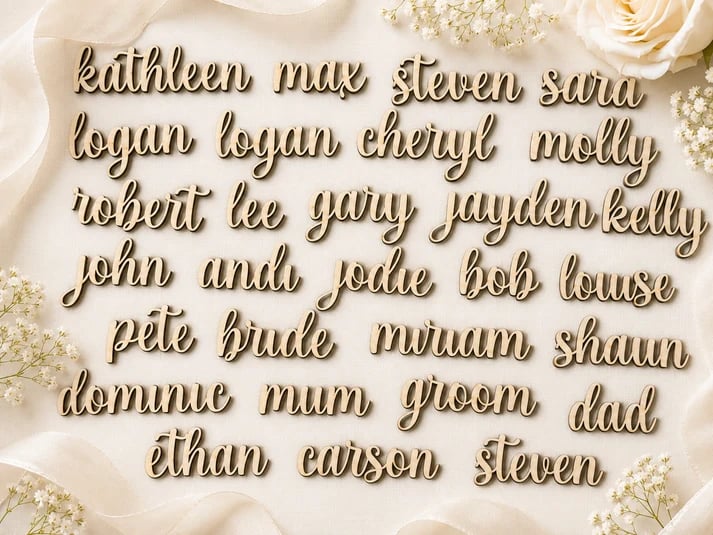 kathleen max steven sara
logan logan cheryl molly
robert lee gary jayden kelly
john andi jodie bob louise
pete bride miriam shaun
dominic mum groom dad
ethan carson steven